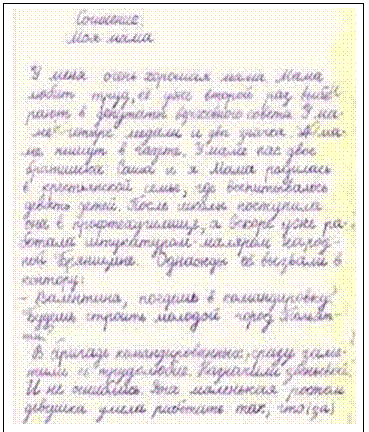 Сочинение.
Моя мама
У меня очень хорошая мама. Мама
любит труд, её уже второй раз выби-
рают в депутаты городского совета. У ма-
мы четыре медали и два значка. О ма-
ме пишут в газете. У мамы нас двое
братишка Саша и я. Мама родилась
в крестьянской семье, где воспитывалось
девять детей. После школы поступила
она в профтехучилище, а вскоре уже ра-
ботала штукатуром-маляром народ-
ной Брянщине. Однажды её вызвали в
контору:
- Валентина, поедешь в командировку?
Будешь строить молодой город Тольят-
ти
В бригаде командированных, сразу заме-
тили её трудолюбие. Назначили звеньевой.
И не ошиблись. Эта маленькая ростом
девушка умела работать так, что (за)